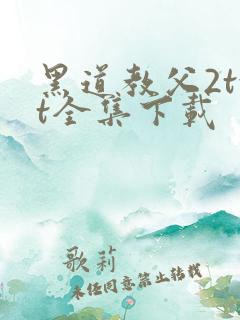 黑道教父2tx
t全集下载
歌莉
未经同意禁止转载